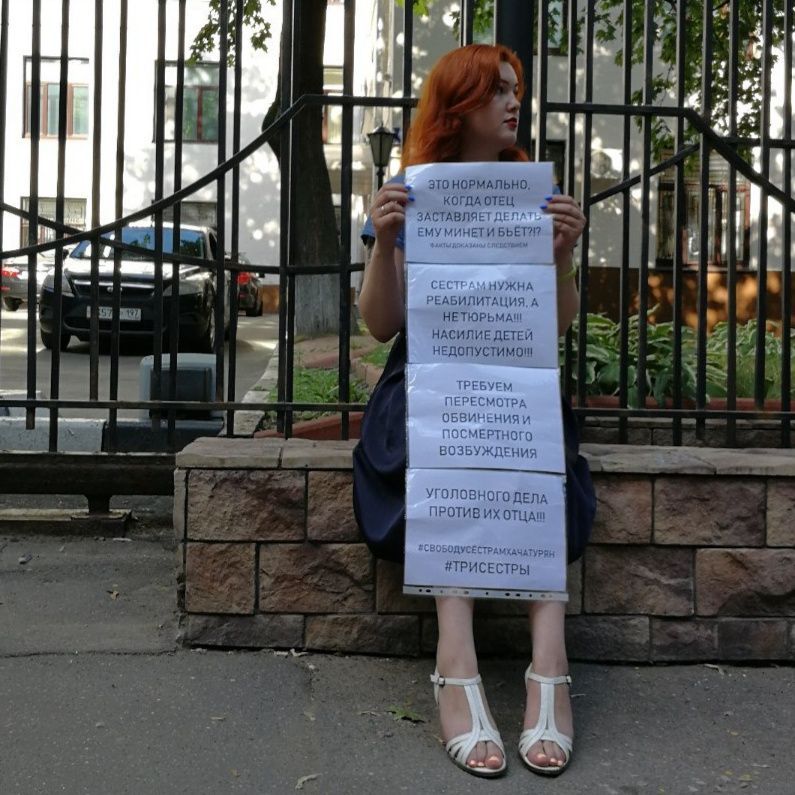 ЭТО НОРМАЛЬНО,
КОГДА ОТЕЦ
ЗАСТАВЛЯЕТ ДЕЛАТЬ
ЕМУ МИНЕТ И БЬЁТ?!?
ФАКТЫ ДОКАЗАНЫ СЛЕДСТВИЕМ
СЕСТРАМ НУЖНА
РЕАБИЛИТАЦИЯ, А
НЕ ТЮРЬМА!!!
НАСИЛИЕ ДЕТЕЙ
НЕДОПУСТИМО!!!
ТРЕБУЕМ
ПЕРЕСМОТРА
ОБВИНЕНИЯ И
ПОСМЕРТНОГО
ВОЗБУЖДЕНИЯ
УГОЛОВНОГО ДЕЛА
ПРОТИВ ИХ ОТЦА!!!
#СВОБОДУСЁСТРАМХАЧАТУРЯН
#ТРИСЕСТРЫ
197